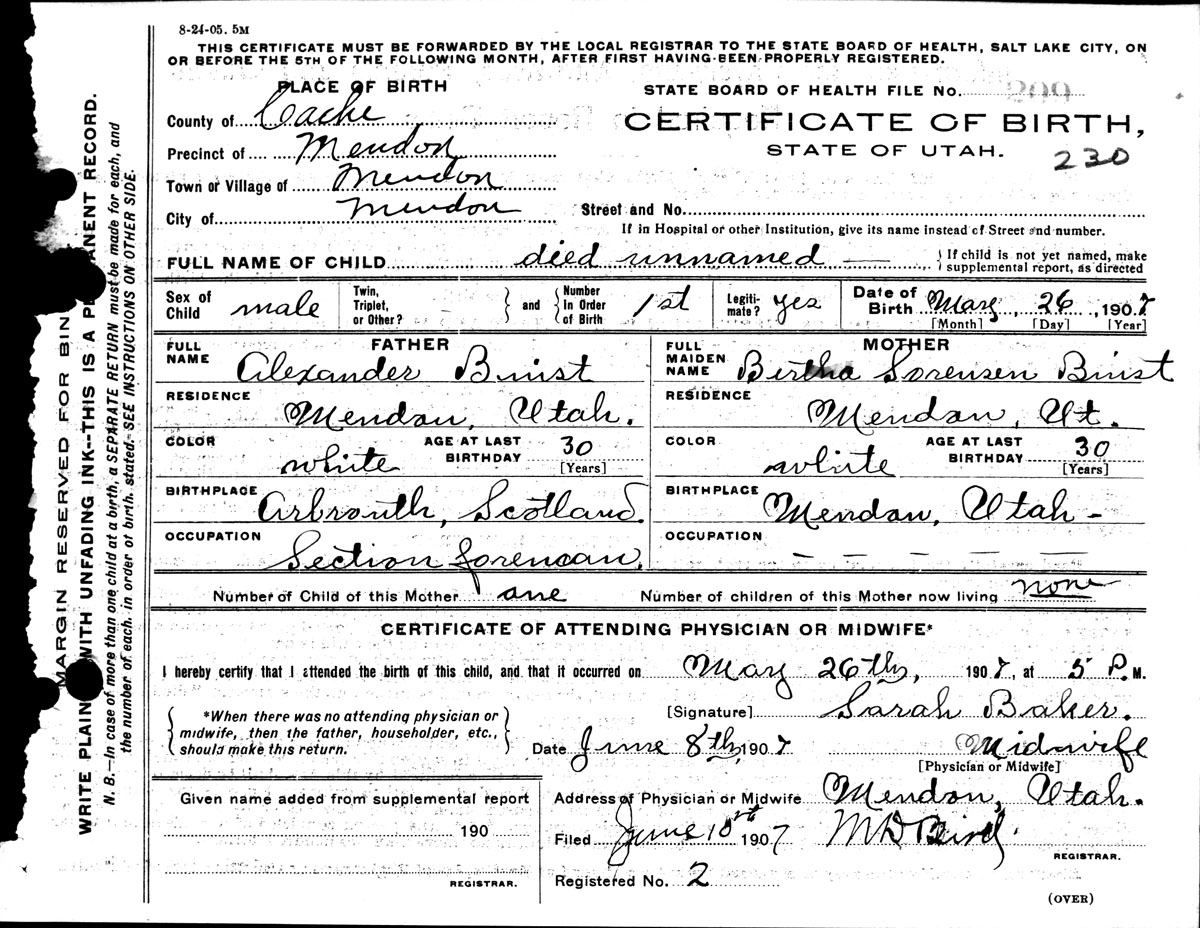 8-24-05. 5M
THIS CERTIFICATE MUST BE FORWARDED BY THE LOCAL REGISTRAR TO THE STATE BOARD OF HEALTH, SALT LAKE CITY, ON
OR BEFORE THE 5TH OF THE FOLLOWING MONTH, AFTER FIRST HAVING BEEN PROPERLY REGISTERED.
PLACE OF BIRTH
STATE BOARD OF HEALTH FILE No. 209
County of Cache
CERTIFICATE OF BIRTH,
Precinct of Mendon
STATE OF UTAH.
230
Town or Village of Mendon
City of Mendon
Street and No.
If in Hospital or other Institution, give its name instead of Street and number.
FULL NAME OF CHILD died unnamed —
If child is not yet named, make
supplemental report, as directed
Sex of Child male
Twin, Triplet, or Other? -
and
Number In Order of Birth 1st
Legiti-mate? yes
Date of Birth May 26, 1907
[Month] [Day] [Year]
FATHER
FULL NAME Alexander Binist
RESIDENCE Mendon, Utah.
COLOR white
AGE AT LAST BIRTHDAY 30
[Years]
BIRTHPLACE Arbrouth, Scotland.
OCCUPATION Section foreman.
MOTHER
FULL MAIDEN NAME Bertha Sorensen Binist
RESIDENCE Mendon, Ut.
COLOR white
AGE AT LAST BIRTHDAY 30
[Years]
BIRTHPLACE Mendon, Utah -
OCCUPATION — — — — —
Number of Child of this Mother one
Number of children of this Mother now living none
CERTIFICATE OF ATTENDING PHYSICIAN OR MIDWIFE*
I hereby certify that I attended the birth of this child, and that it occurred on May 26th, 1907, at 5 P. M.
*When there was no attending physician or
midwife, then the father, householder, etc.,
should make this return.
[Signature] Sarah Baker.
Date June 8th, 1907
Midwife
[Physician or Midwife]
Given name added from supplemental report
190
REGISTRAR.
Address of Physician or Midwife Mendon, Utah.
Filed June 10th 1907
M D Bird.
REGISTRAR.
Registered No. 2
(OVER)
MARGIN RESERVED FOR BIN
WRITE PLAIN WITH UNFADING INK--THIS IS A PE ANENT RECORD.
N. B.—In case of more than one child at a birth, a SEPARATE RETURN must be made for each, and
the number of each, in order of birth, stated. SEE INSTRUCTIONS ON OTHER SIDE.